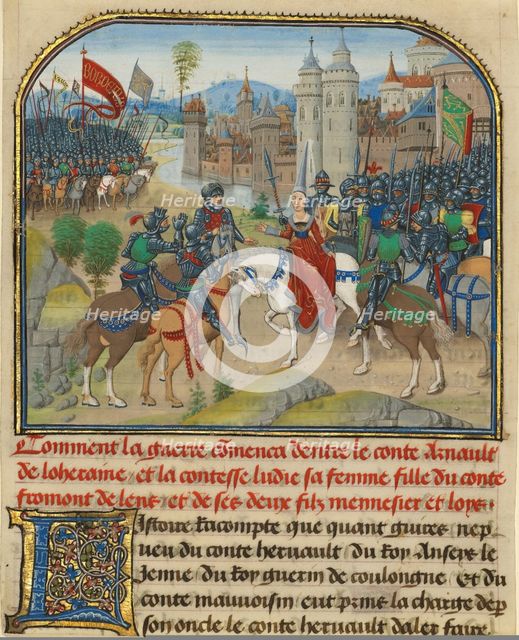 BORDEAUX
Heritage Heritage
Images Images
©
Heritage Heritage
Images Images
Comment la guerre comenca dentre le conte Arnault
de loheraine, et la contesse ludie sa femme fille du conte
fromont de lens. et de ses deux filz mennesier et loys.
Listoire racompte que quant gires nep
ueu du conte heruault Du Roy Anseys le
Jenne Du Roy guerin de coulongne Et du
conte mauuoisin eut prins la charge de p
son oncle le conte heruault daler faire